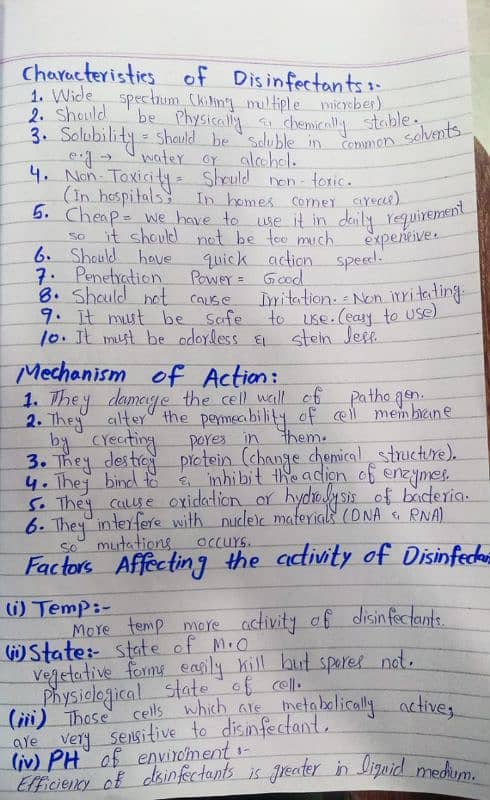 Characteristics of Disinfectants :-
1. Wide spectrum (killing multiple microbes)
2. Should be Physically & chemically stable.
3. Solubility = should be soluble in common solvents
e.g → water or alcohol.
4. Non-Toxicity = Should non-toxic.
(In hospitals, In homes corner areas)
5. Cheap = we have to use it in daily requirement
so it should not be too much expensive.
6. Should have quick action speed.
7. Penetration Power = Good
8. Should not cause Irritation. = Non irritating.
9. It must be safe to use. (easy to use)
10. It must be odorless & stein less.
Mechanism of Action:
1. They damage the cell wall of pathogen.
2. They alter the permeability of cell membrane
by creating pores in them.
3. They destroy protein (change chemical structure).
4. They bind to & inhibit the action of enzymes.
5. They cause oxidation or hydrolysis of bacteria.
6. They interfere with nucleic materials (DNA & RNA)
so mutations occurs.
Factors Affecting the activity of
(i) Temp:-
More temp more activity of disinfectants.
(ii) State:- state of M.O
vegetative forms easily kill but spores not.
Physiological state of cell.
(iii) Those cells which are metabolically active,
are very sensitive to disinfectant.
(iv) PH of enviroment :-
Efficiency of disinfectants is greater in liquid medium.